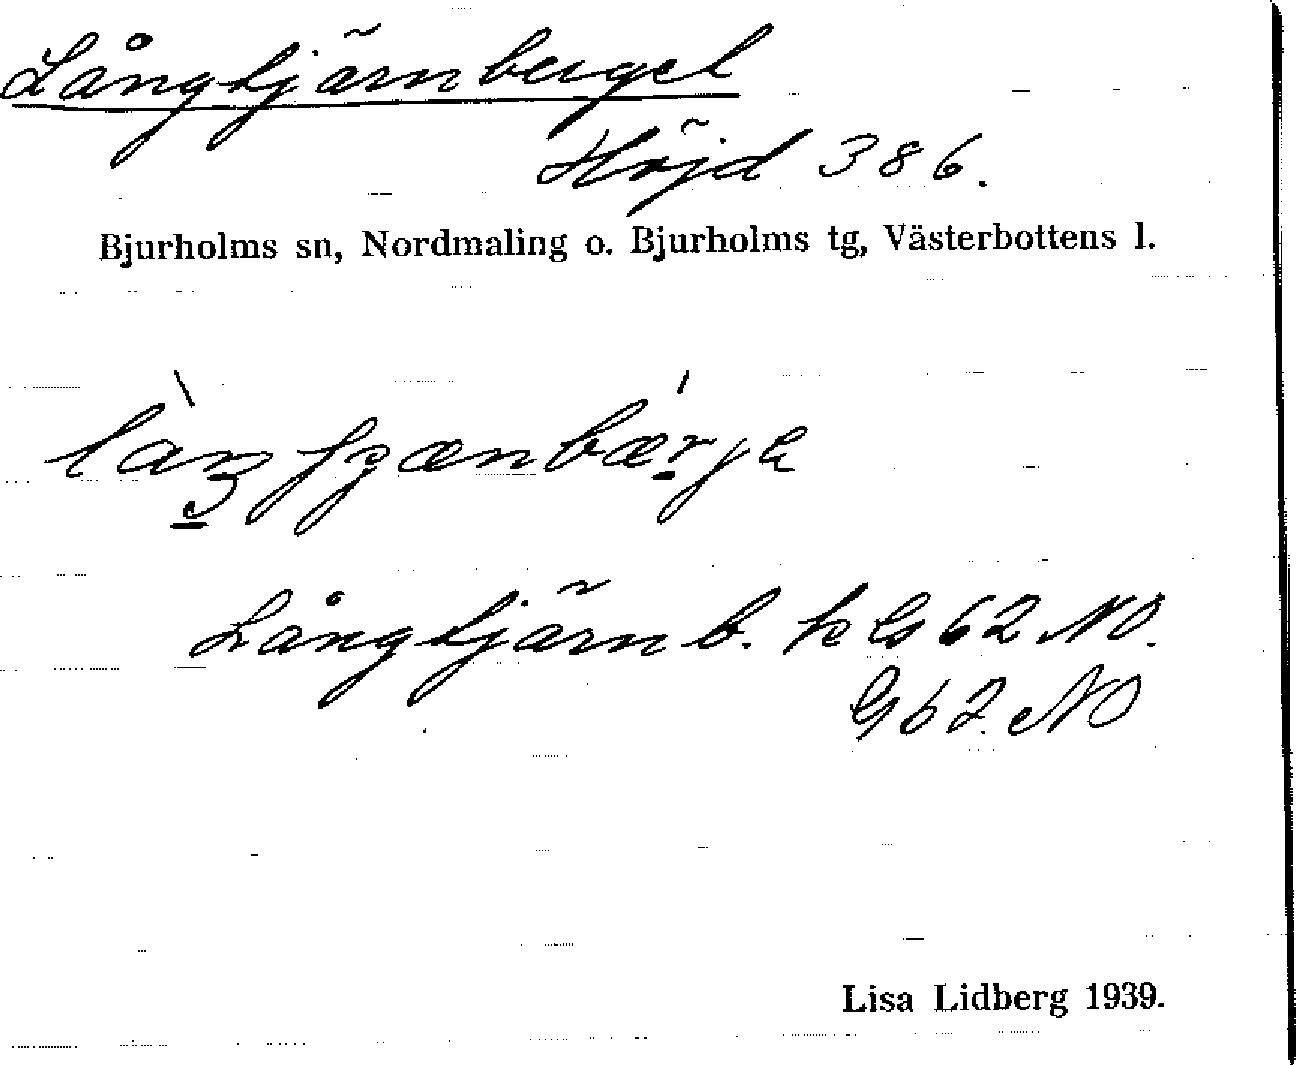 Långtjärnberget
Höjd 386.
Bjurholms sn, Nordmaling o. Bjurholms tg, Västerbottens l.
Långtjärnb. k G 62 NO.
G 62. NO
Lisa Lidberg 1939.